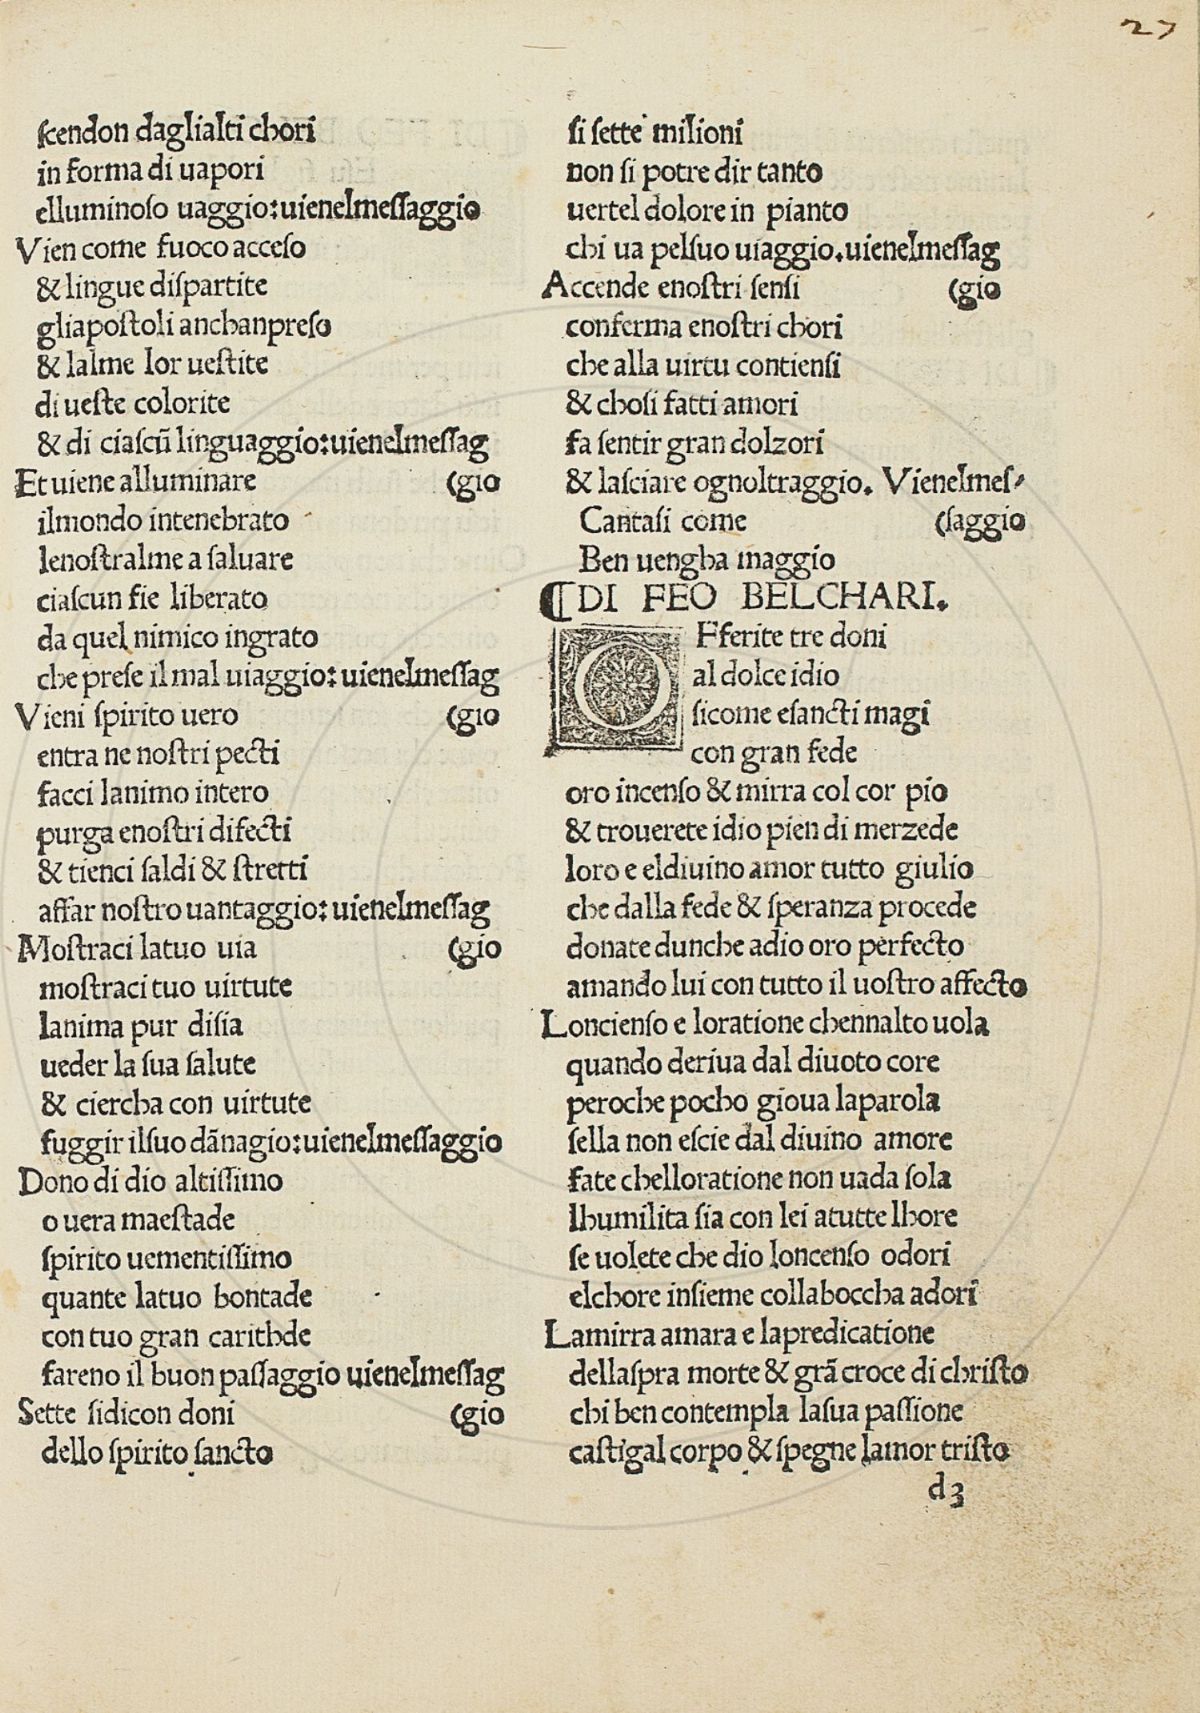 27
ſcendon daglialti chori
in forma di uapori
elluminoſo uaggio:uienelmeſſaggio
Vien come fuoco acceſo
& lingue diſpartite
gliapoſtoli anchanpreſo
& lalme lor ueſtite
di ueſte colorite
& di ciaſcū linguaggio:uienelmeſſag
Et uiene alluminare (gio
ilmondo intenebrato
lenoſtralme a ſaluare
ciaſcun fie liberato
da quel nimico ingrato
che preſe il mal uiaggio:uienelmeſſag
Vieni ſpirito uero (gio
entra ne noſtri pecti
facci lanimo intero
purga enoſtri difecti
& tienci ſaldi & ſtretti
affar noſtro uantaggio:uienelmeſſag
Moſtraci latuo uia (gio
moſtraci tuo uirtute
lanima pur diſia
ueder la ſua ſalute
& ciercha con uirtute
fuggir ilſuo dānagio:uienelmeſſaggio
Dono di dio altiſſimo
o uera maeſtade
ſpirito uementiſſimo
quante latuo bontade
con tuo gran carithde
fareno il buon paſſaggio uienelmeſſag
Sette ſidicon doni (gio
dello ſpirito ſancto
ſi ſette milioni
non ſi potre dir tanto
uertel dolore in pianto
chi ua pelſuo uiaggio.uienelmeſſag
Accende enoſtri ſenſi (gio
conferma enoſtri chori
che alla uirtu contienſi
& choſi fatti amori
fa ſentir gran dolzori
& laſciare ognoltraggio. Vienelmeſ-
Cantaſi come (ſaggio
Ben uengha maggio
¶DI FEO BELCHARI.
OFferite tre doni
al dolce idio
ſicome eſancti magi
con gran fede
oro incenſo & mirra col cor pio
& trouerete idio pien di merzede
loro e eldiuino amor tutto giulio
che dalla fede & ſperanza procede
donate dunche adio oro perfecto
amando lui con tutto il uoſtro affecto
Loncienſo e loratione chennalto uola
quando deriua dal diuoto core
peroche pocho gioua laparola
ſella non eſcie dal diuino amore
fate chelloratione non uada ſola
lhumilita ſia con lei atutte lhore
ſe uolete che dio loncenſo odori
elchore inſieme collaboccha adori
Lamirra amara e lapredicatione
dellaſpra morte & grā croce di chriſto
chi ben contempla laſua paſſione
caſtigal corpo & ſpegne lamor triſto
d3